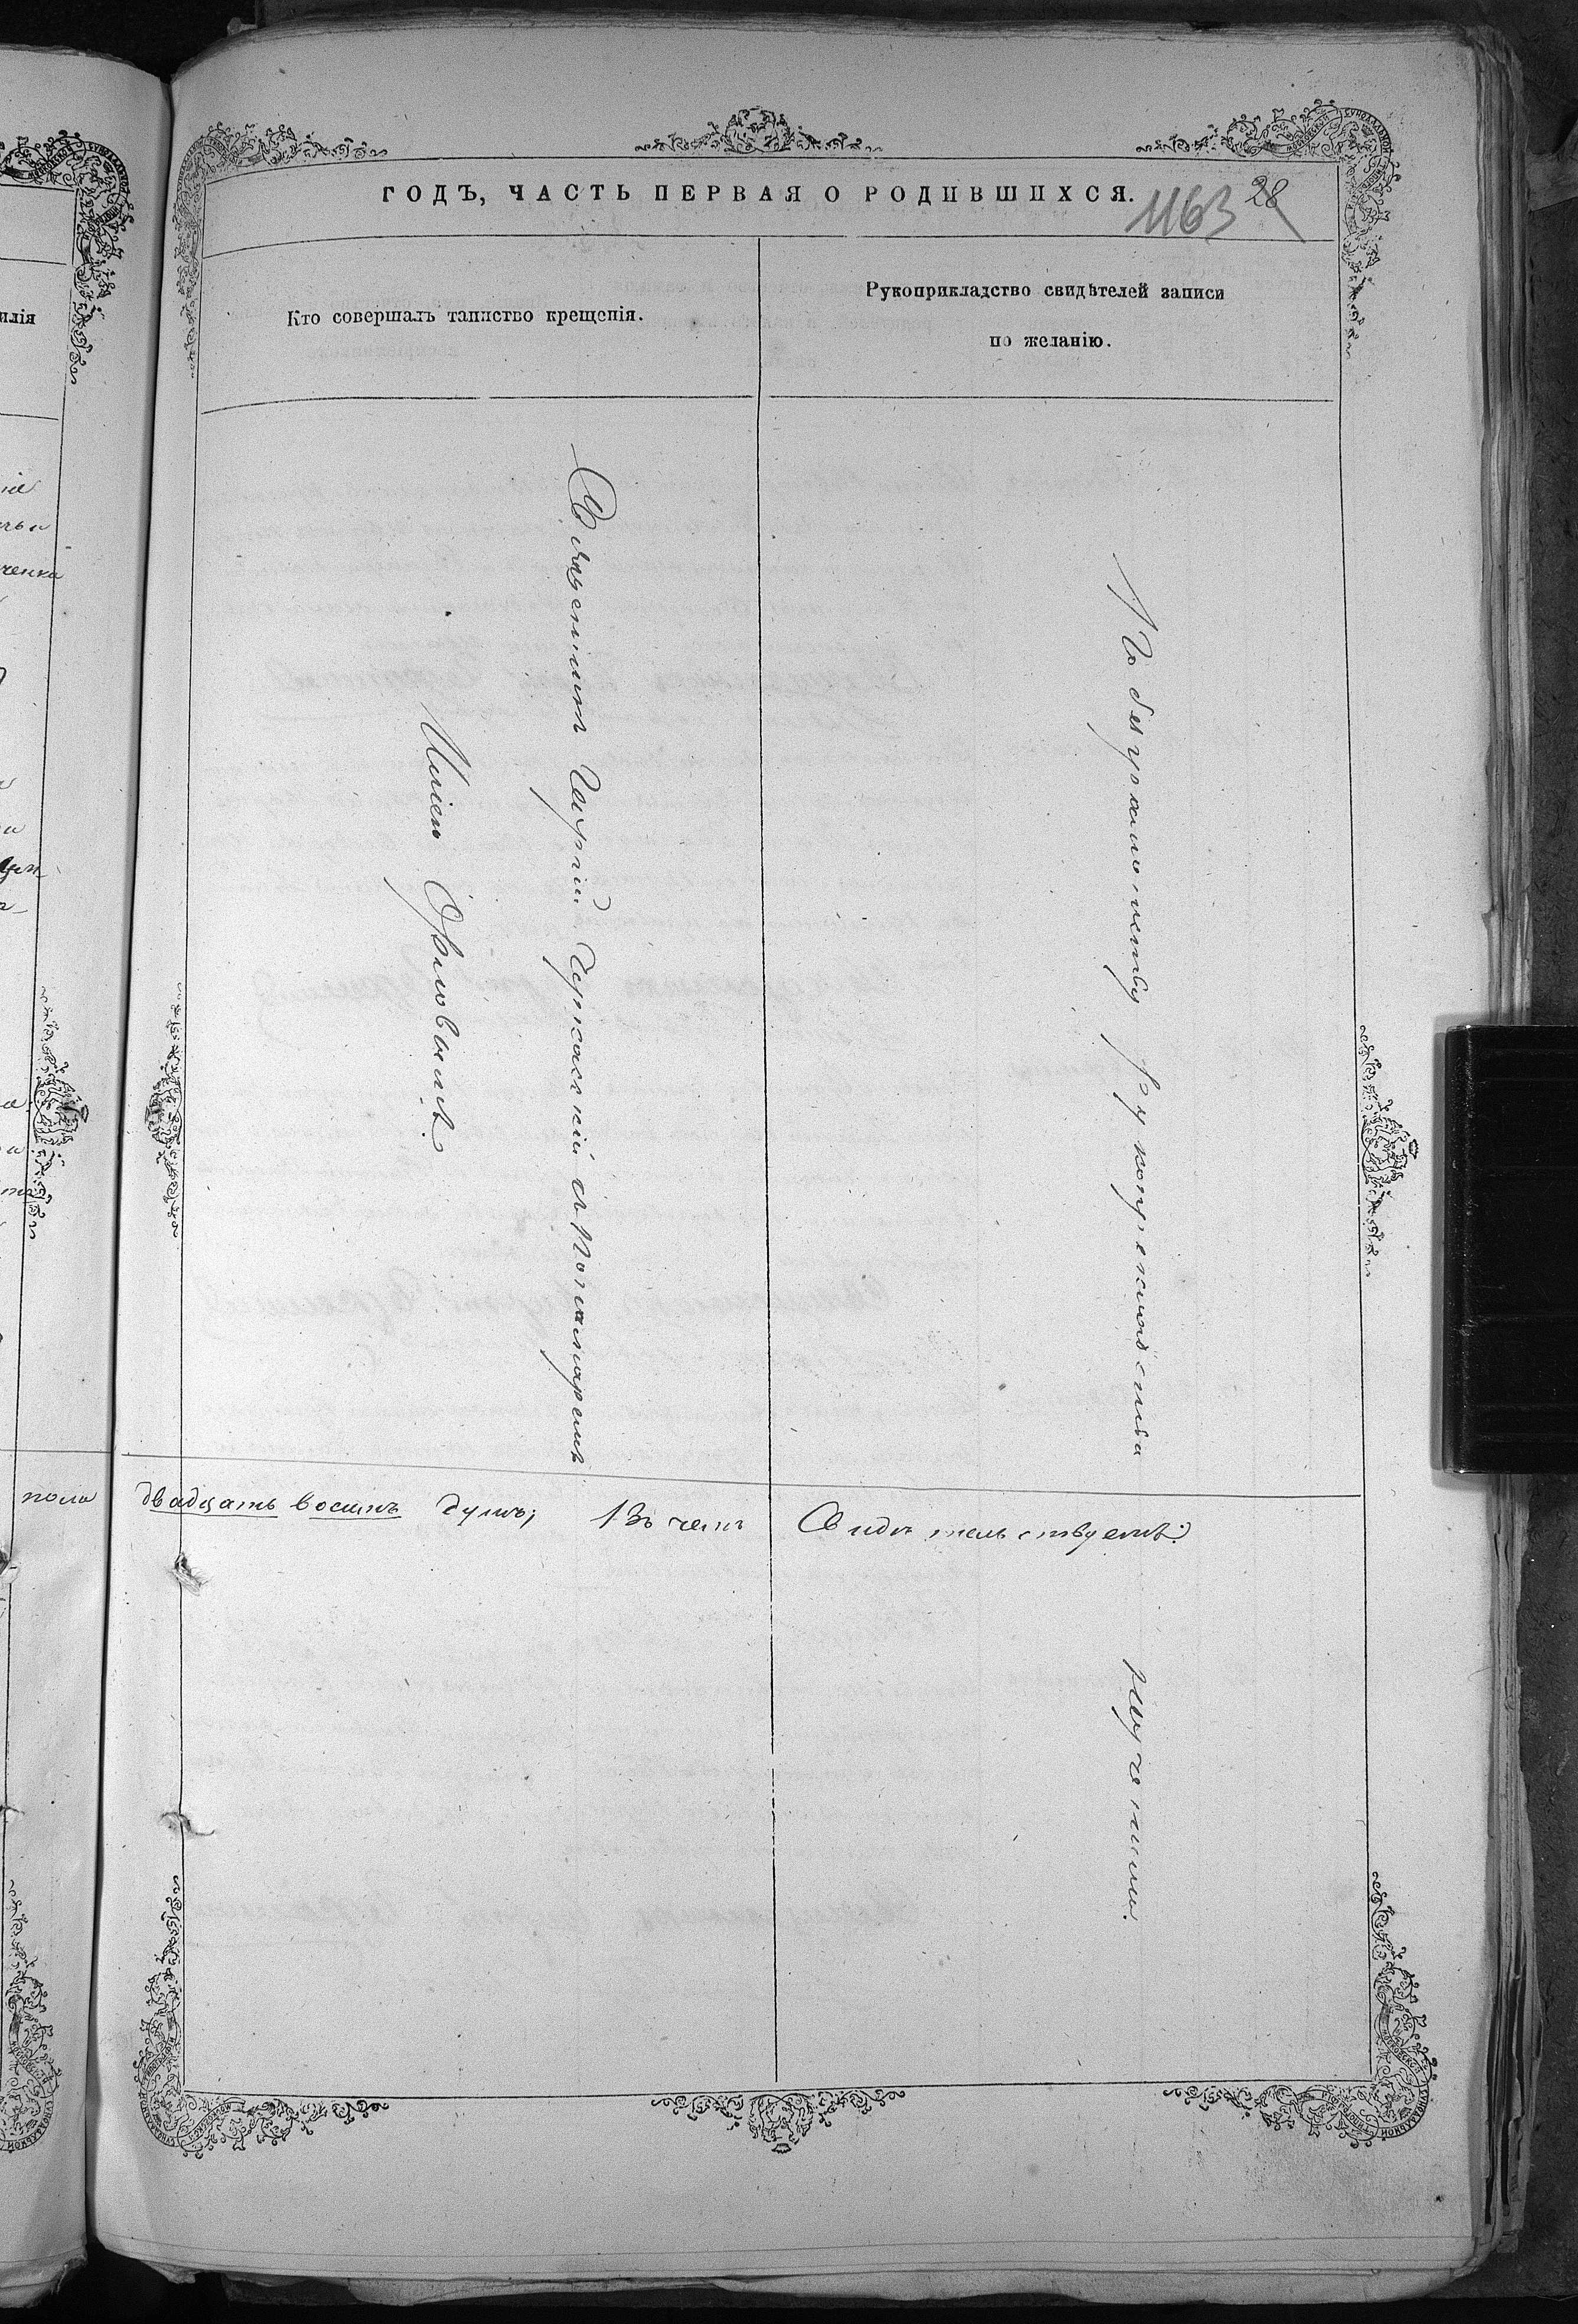 ГОДЪ, ЧАСТЬ ПЕРВАЯ О РОДИВШИХСЯ.
1163 28
илія
Кто совершалъ таинство крещенія.
Рукоприкладство свидѣтелей записи
по желанію.
ченка
Священникъ Георгій Черкасскій съ Пономаремъ
Ильею Орловымъ.
По безграмотству рукоприкладства
неучинили.
пола двадцать восемь душъ; Въ чемъ Свидѣтельствуемъ: